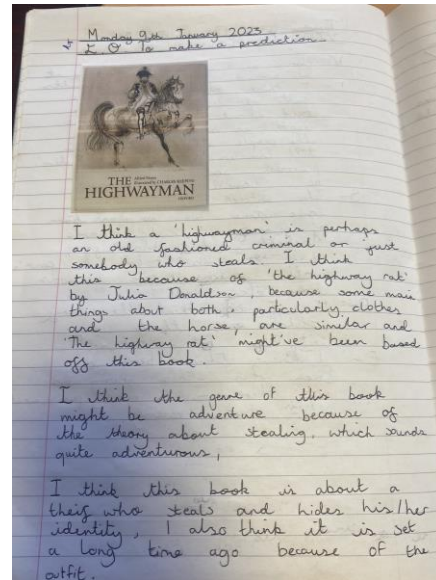 Monday 9th January 2023
L.O To make a prediction
THE
HIGHWAYMAN
I think a 'highwayman' is perhaps
an old fashioned criminal or just
somebody who steals. I think
this because of 'the highway rat'
by Julia Donaldson, because some main
things about both, particularly clothes
and the horse, are similar and
'The highway rat' might've been based
off this book.
I think the genre of this book
might be adventure because of
the theory about stealing, which sounds
quite adventurous,
I think this book is about a
theif who steals and hides his/her
identity, I also think it is set
a long time ago because of the
outfit.